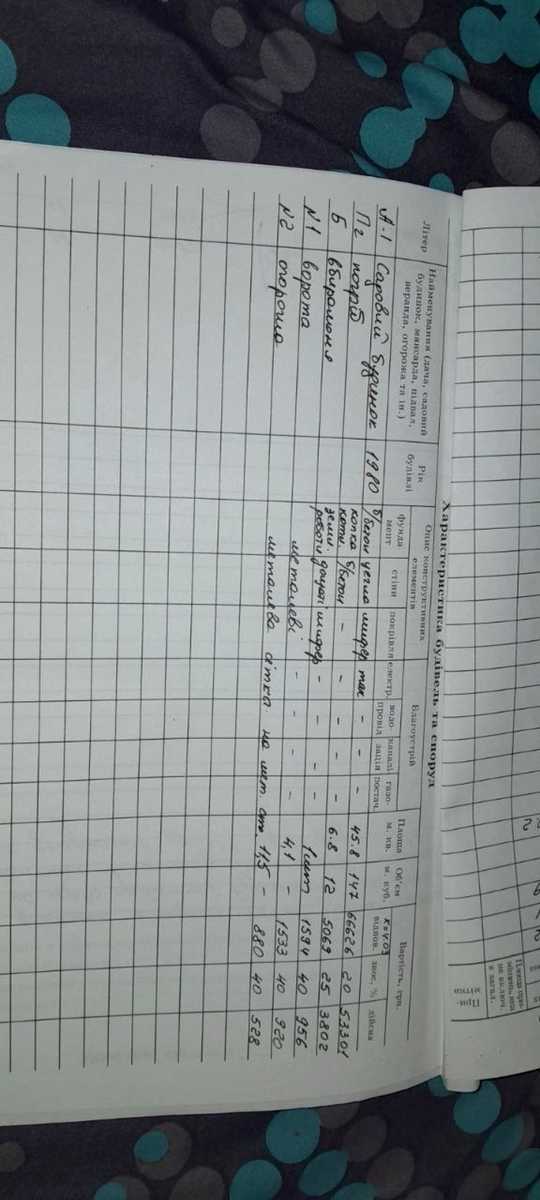 Характеристика будівель та споруд
Літер
Найменування (дача, садовий будинок, мансарда, підвал, веранда, огорожа та ін.)
Рік будівлі
Опис конструктивних елементів
фундамент
стіни
покрівля
Благоустрій
електр.
водопровід
каналізація
газопостач.
Площа м. кв.
Об'єм м. куб.
Вартість, грн.
к=4.03
віднов.
знос, %
дійсна
А-1 Садовий будинок 1980 б/бетон цегла шифер так - - - 45.8 147 66626 20 53301
Пг погріб копка котл. б/бетон - - - - - 6.8 12 5069 25 3802
Б вбиральня земл. роботи дощаті шифер - - - - 1шт 1594 40 956
№1 ворота металеві - - - - 4,1 - 1533 40 920
№2 огорожа металева сітка на мет. ст. 11,5 - 880 40 528
Площа
не включ.
в загал.
Примітка